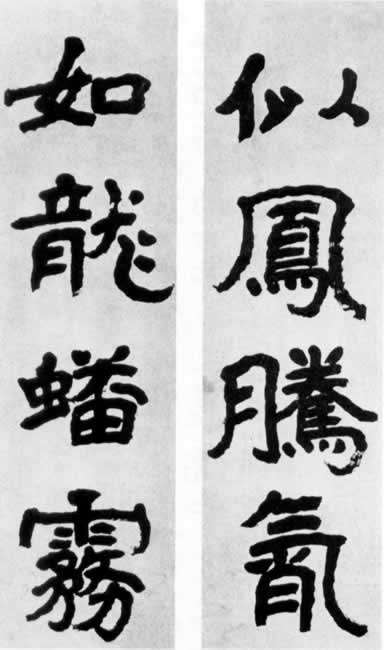 似鳳騰
如龍蟠霧